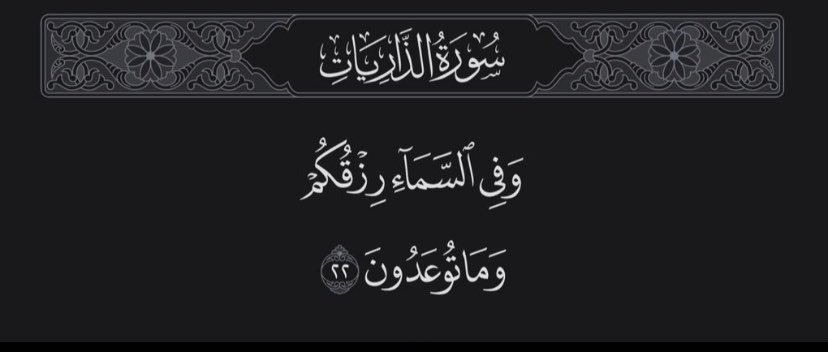 سُورَةُ الذَّارِيَاتِ
وَفِي ٱلسَّمَآءِ رِزۡقُكُمۡ
وَمَا تُوعَدُونَ ٢٢